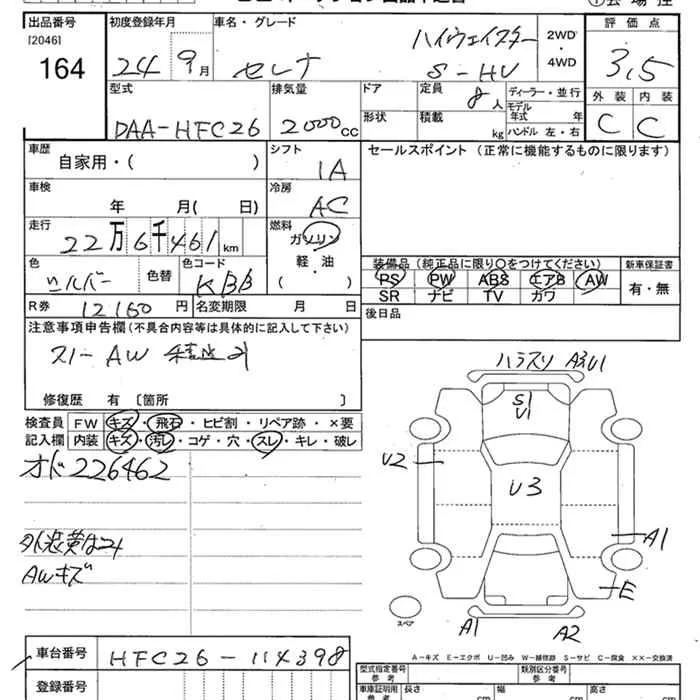 出品番号
[2046]
164
初度登録年月
24 9月
車名・グレード
セレナ
ハイウェイスター
S-HV
2WD
・
4WD
評価点
3.5
外装 内装
C C
型式
DAA-HFC26
排気量
2000cc
ドア
定員
8人
ディーラー・並行
形状
積載
kg
モデル
年式 年
ハンドル 左・右
車歴
自家用・( )
シフト
IA
セールスポイント (正常に機能するものに限ります)
車検
年 月( 日)
冷房
AC
走行
22万6千461km
燃料
ガソリン
軽・油
( )
色
シルバー
色替
色コード
KBB
装備品 (純正品に限り○をつけてください)
PS PW ABS エアB AW
SR ナビ TV カワ
新車保証書
有・無
R券 12160円
名変期限 月 日
後日品
注意事項申告欄(不具合内容等は具体的に記入して下さい)
スリーAW
修復歴 有 [箇所 ]
検査員
記入欄
FW キズ・飛石・ヒビ割・リペア跡・×要
内装 キズ・汚レ・コゲ・穴・スレ・キレ・破レ
オド226462
AWキズ
ハラスリ A3U1
S1
U1
U2
U3
A1
E
スペア
A1
A2
A-キズ E-エクボ U-凹み W-補修跡 S-サビ C-腐食 XX-交換済
車台番号
HFC26-114398
登録番号
型式指定番号
参考
類別区分番号
参考
車庫証明用
参考
長さ cm
幅 cm
高さ cm